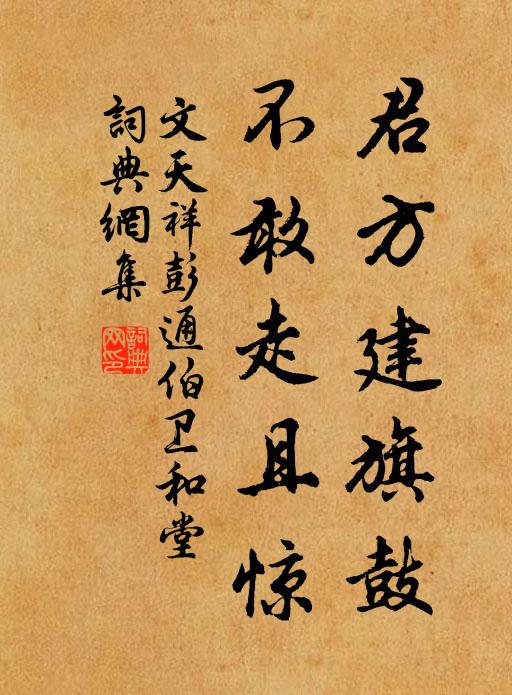 君方建旗鼓
不敢走且惊
文天祥彭通伯卫和堂
詞典網集
詞典网印